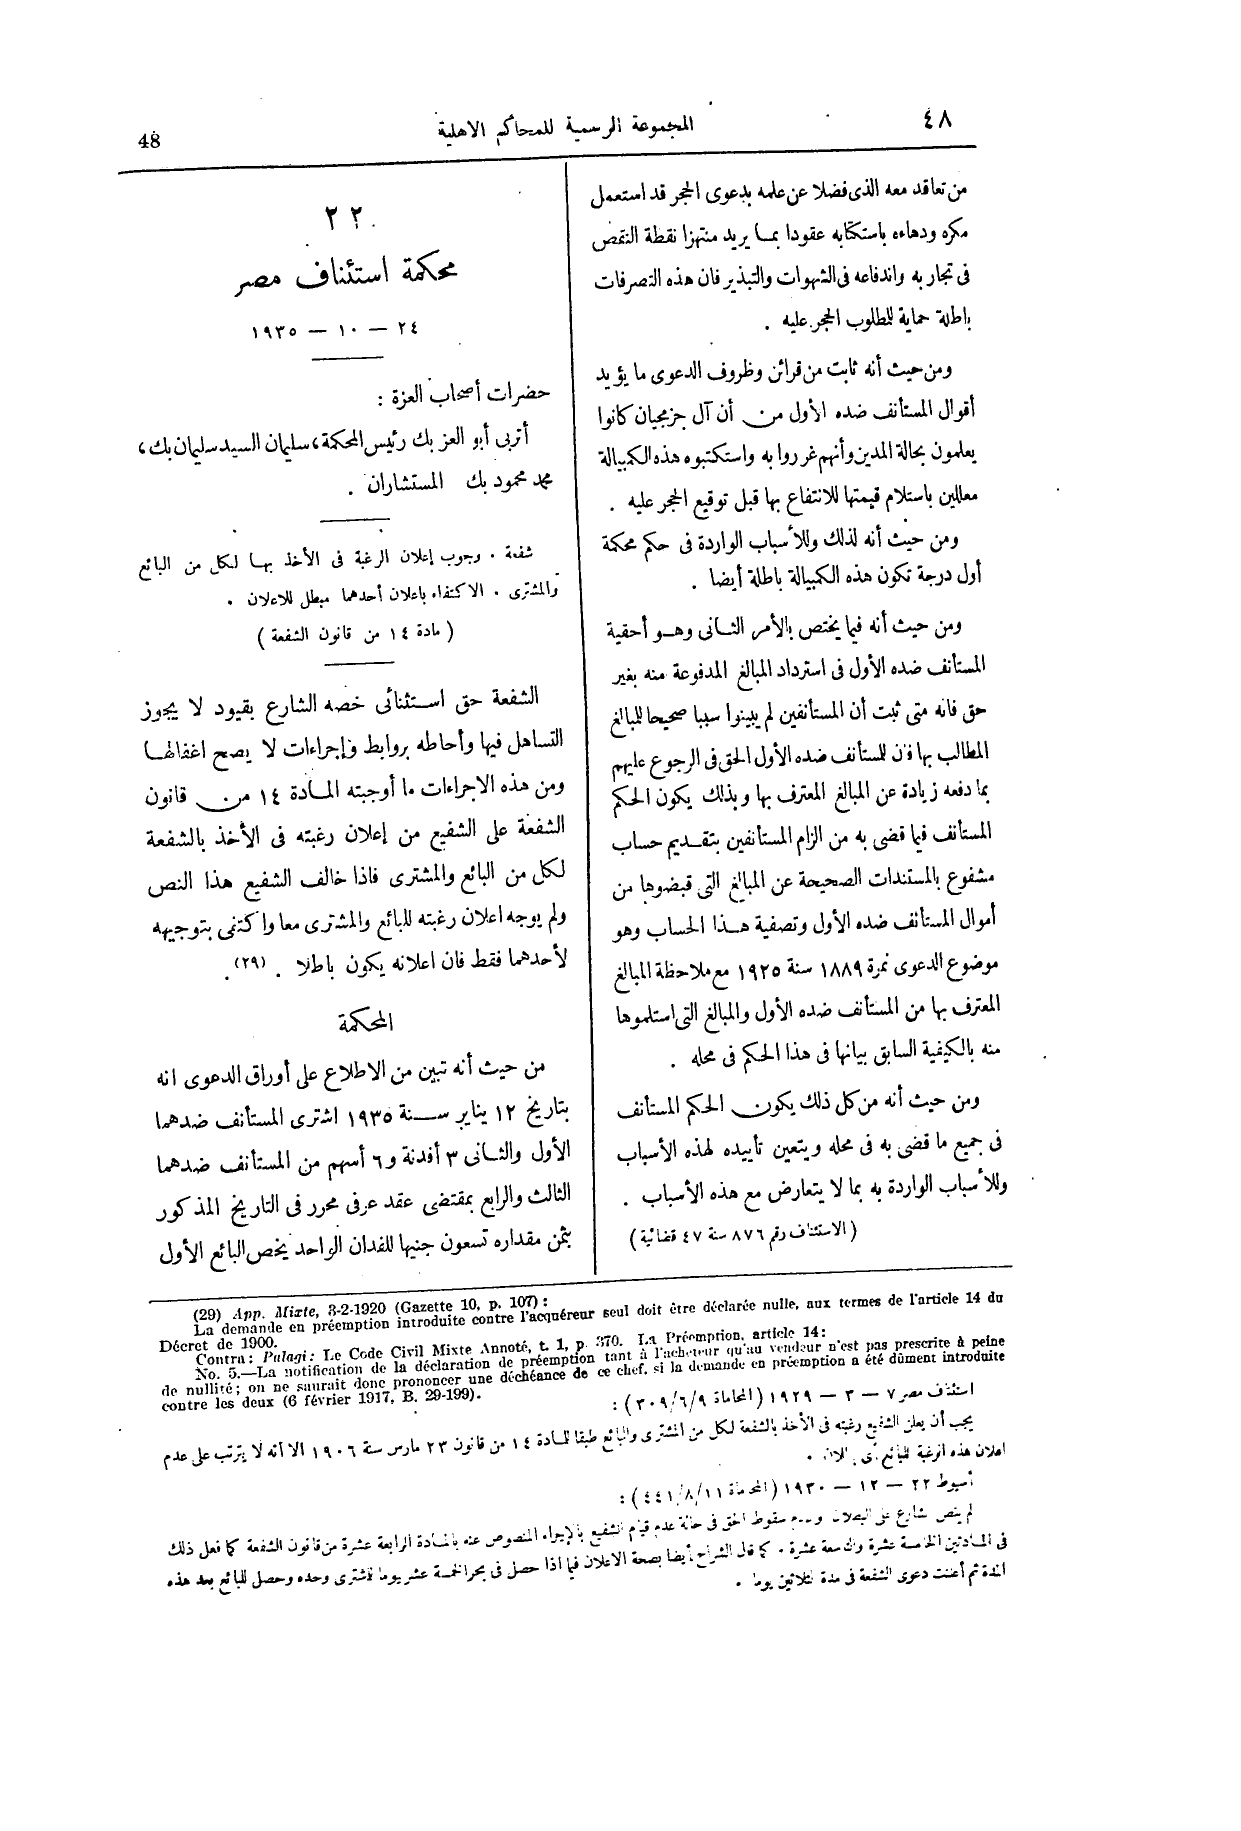 ٤٨
المجموعة الرسمية للمحاكم الاهلية
48
من تعاقد معه الذى فضلا عن علمه بدعوى الحجر قد استعمل
مكره ودهاءه باستكتابه عقودا بما يريد منتهزا نقطة النقص
فى تجاربه واندفاعه فى الشهوات والتبذير فان هذه التصرفات
باطلة حماية للمطلوب الحجر عليه .
ومن حيث أنه ثابت من قرائن وظروف الدعوى ما يؤيد
أقوال المستأنف ضده الأول من أن آل جزمجيان كانوا
يعلمون بحالة المدين وأنهم غرروا به واستكتبوه هذه الكمبيالة
معللين باستلام قيمتها للانتفاع بها قبل توقيع الحجر عليه .
ومن حيث أنه لذلك وللأسباب الواردة فى حكم محكمة
أول درجة تكون هذه الكمبيالة باطلة أيضا .
ومن حيث أنه فيما يختص بالأمر الثانى وهو أحقية
المستأنف ضده الأول فى استرداد المبالغ المدفوعة منه بغير
حق فانه متى ثبت أن المستأنفين لم يبينوا سببا صحيحا للمبالغ
المطالب بها فان للمستأنف ضده الأول الحق فى الرجوع عليهم
بما دفعه زيادة عن المبالغ المعترف بها وبذلك يكون الحكم
المستأنف فيما قضى به من الزام المستأنفين بتقديم حساب
مشفوع بالمستندات الصحيحة عن المبالغ التى قبضوها من
أموال المستأنف ضده الأول وتصفية هذا الحساب وهو
موضوع الدعوى نمرة ١٨٨٩ سنة ١٩٢٥ مع ملاحظة المبالغ
المعترف بها من المستأنف ضده الأول والمبالغ التى استلموها
منه بالكيفية السابق بيانها فى هذا الحكم فى محله .
ومن حيث أنه من كل ذلك يكون الحكم المستأنف
فى جميع ما قضى به فى محله ويتعين تأييده لهذه الأسباب
وللأسباب الواردة به بما لا يتعارض مع هذه الأسباب .
(الاستئناف رقم ٨٧٦ سنة ٤٧ قضائية)
٢٢
محكمة استئناف مصر
٢٤ — ١٠ — ١٩٣٥
حضرات أصحاب العزة :
أتربى أبو العز بك رئيس المحكمة، سليمان السيد سليمان بك،
محمد محمود بك المستشاران .
شفعة . وجوب إعلان الرغبة فى الأخذ بها لكل من البائع
والمشترى . الاكتفاء باعلان أحدهما مبطل للاعلان .
( مادة ١٤ من قانون الشفعة )
الشفعة حق استثنائى خصه الشارع بقيود لا يجوز
التساهل فيها وأحاطه بروابط وإجراءات لا يصح اغفالها
ومن هذه الاجراءات ما أوجبته المادة ١٤ من قانون
الشفعة على الشفيع من إعلان رغبته فى الأخذ بالشفعة
لكل من البائع والمشترى فاذا خالف الشفيع هذا النص
ولم يوجه اعلان رغبته للبائع والمشترى معا واكتفى بتوجيهه
لأحدهما فقط فان اعلانه يكون باطلا . (٢٩).
المحكمة
من حيث أنه تبين من الاطلاع على أوراق الدعوى انه
بتاريخ ١٢ يناير سنة ١٩٣٥ اشترى المستأنف ضدهما
الأول والثانى ٣ أفدنة و٦ أسهم من المستأنف ضدهما
الثالث والرابع بمقتضى عقد عرفى محرر فى التاريخ المذكور
بثمن مقداره تسعون جنيها للفدان الواحد يخص البائع الأول
(29) App. Mixte, 3-2-1920 (Gazette 10, p. 107) :
La demande en préemption introduite contre l'acquéreur seul doit être déclarée nulle, aux termes de l'article 14 du
Décret de 1900.
Contra : Palagi : Le Code Civil Mixte Annoté, t. 1, p. 370. La Préemption, article 14 :
No. 5.—La notification de la déclaration de préemption tant à l'acheteur qu'au vendeur n'est pas prescrite à peine
de nullité; on ne saurait donc prononcer une déchéance de ce chef, si la demande en préemption a été dûment introduite
contre les deux (6 février 1917, B. 29-199).
استئناف مصر ٧ — ٣ — ١٩٢٩ (المحاماة ٣٠٩/٦/٩) :
يجب أن يعلن الشفيع رغبته فى الأخذ بالشفعة لكل من المشترى والبائع طبقا للمادة ١٤ من قانون ٢٣ مارس سنة ١٩٠٦ الا أنه لا يترتب على عدم
اعلان هذه الرغبة للبائع أى
أسيوط ٢٢ — ١٢ — ١٩٣٠ (المحاماة ٤٤١/٨/١١) :
لم ينص شارع على البطلان سقوط الحق فى حالة عدم قيام الشفيع بالإجراء المنصوص عنه بالمادة الرابعة عشرة من قانون الشفعة كما فعل ذلك
فى المادتين الخامسة عشرة والتاسعة عشرة . كما قال الشراح أيضا بصحة الاعلان فيما اذا حصل فى بحر الخمسة عشر يوما للمشترى وحده وحصل للبائع بعد هذه
المدة ثم أعلنت دعوى الشفعة فى مدة الثلاثين يوما .